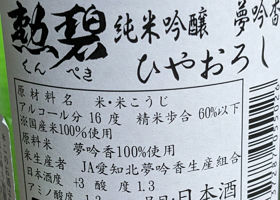 勲碧 純米吟醸 夢吟香
くんぺき ひやおろし
原材料名 米・米こうじ
アルコール分 16度 精米歩合 60%以下
※国産米100%使用
原料米 夢吟香100%使用
米生産者 JA愛知北夢吟香生産組合
日本酒度 +3 酸度 1.3
アミノ酸度 1.3
品目・日本酒